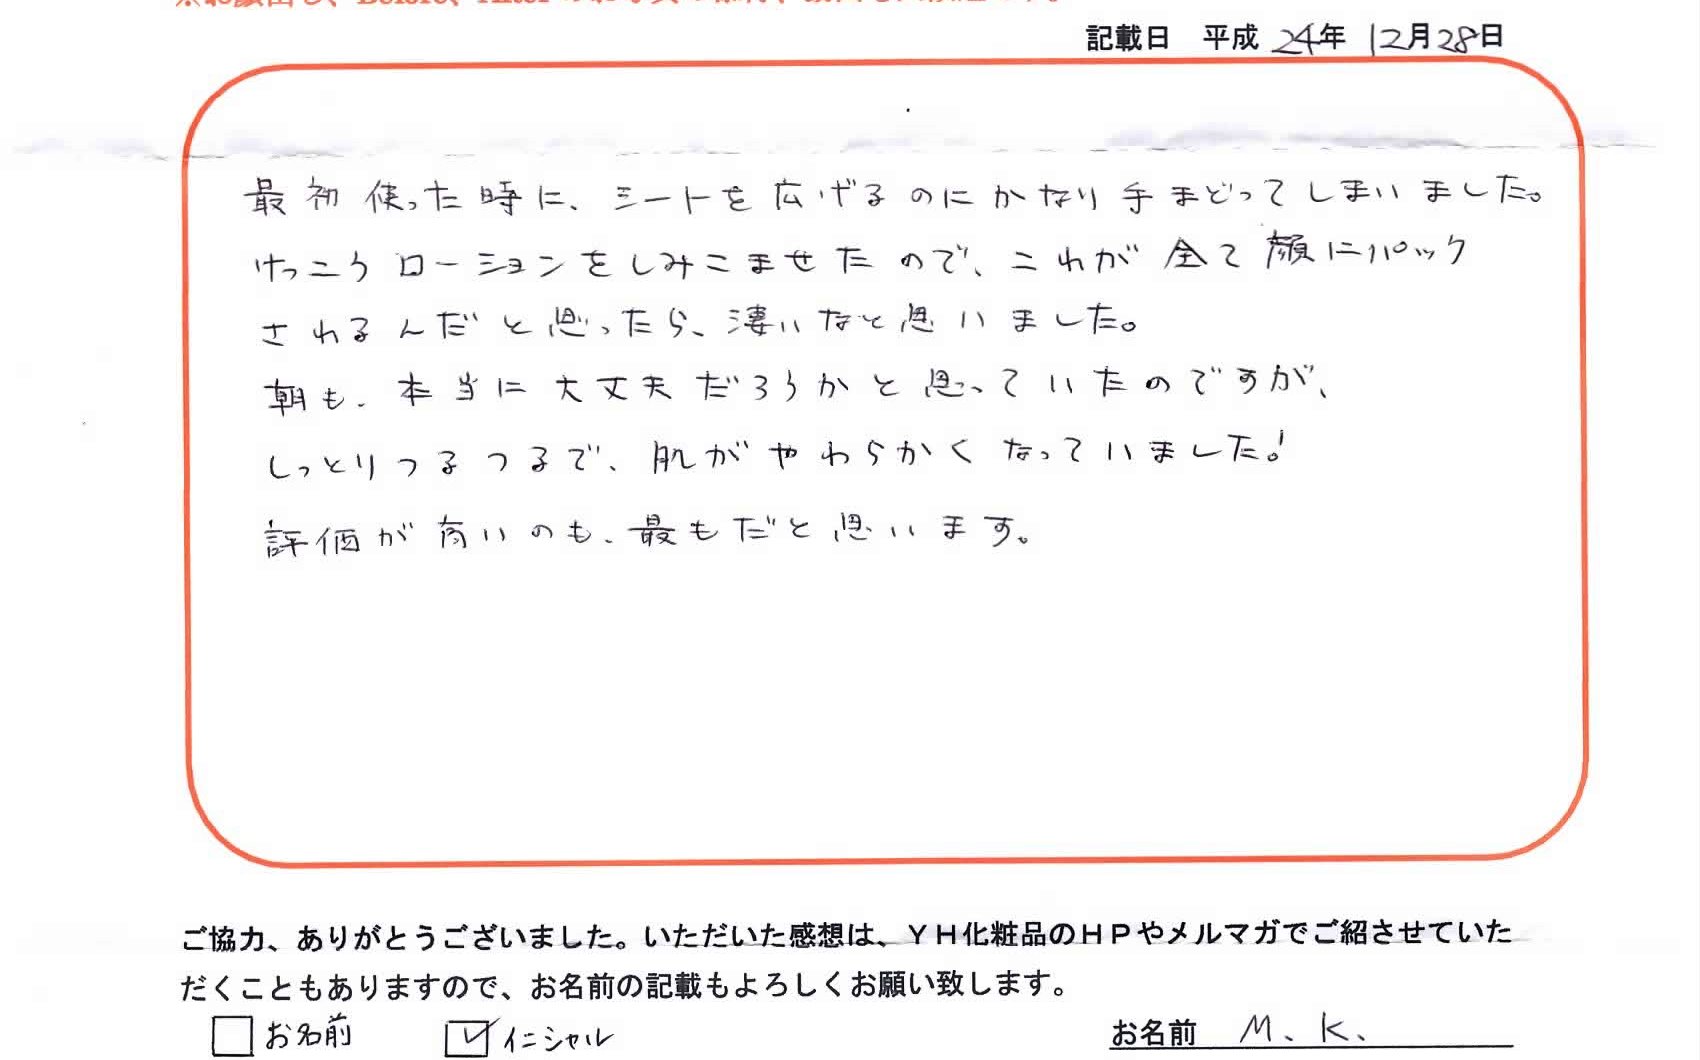 記載日 平成 24年 12月28日
最初使った時に、シートを広げるのにかなり手まどってしまいました。
けっこうローションをしみこませたので、これが全て顔にパック
されるんだと思ったら、凄いなと思いました。
朝も、本当に大丈夫だろうかと思っていたのですが、
しっとりつるつるで、肌がやわらかくなっていました!
評価が高いのも、最もだと思います。
ご協力、ありがとうございました。いただいた感想は、YH化粧品のHPやメルマガでご紹させていた
だくこともありますので、お名前の記載もよろしくお願い致します。
お名前 イニシャル お名前 M、K、